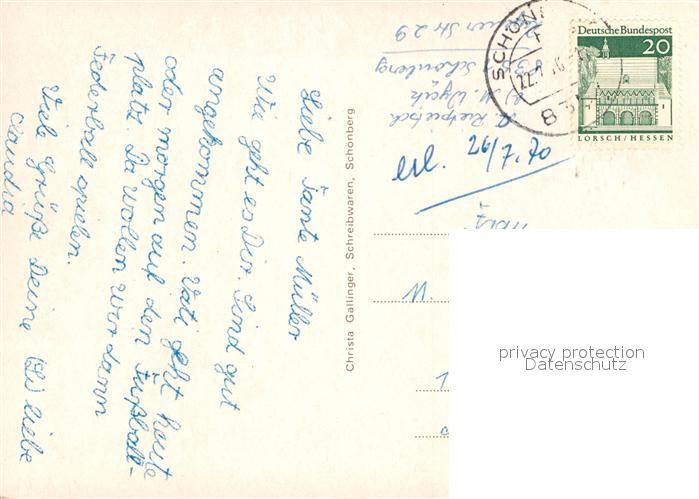 Liebe Tante Müller
Wie geht es Dir. Sind gut
angekommen. Vati geht heute
oder morgen auf den Fußball-
platz. Da wollen wir dann
Federball spielen.
Viele Grüße Deine liebe
Claudia
Christa Gallinger, Schreibwaren, Schönberg
Str 29
Schönberg
erl. 26/7.70
SCHÖN
Deutsche Bundespost
20
LORSCH/HESSEN
privacy protection
Datenschutz